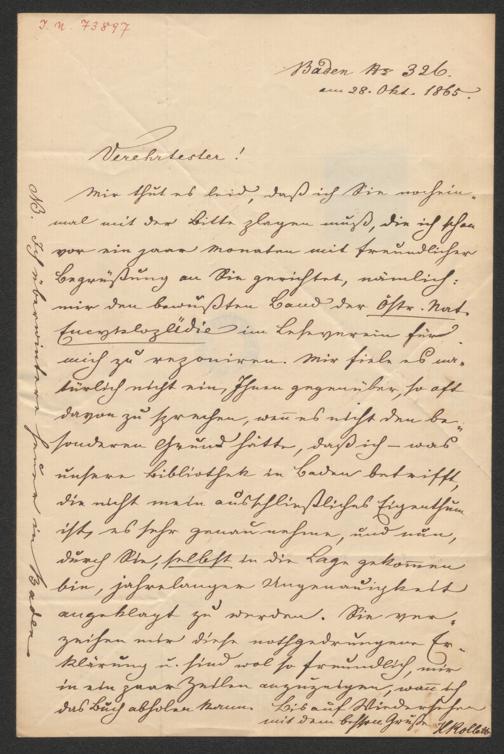 I. N. 73897
Baden N⁰ 326.
am 28. Okt. 1865.
Verehrtester!
Mir thut es leid, daß ich Sie nochein-
mal mit der Bitte plagen muß, die ich schon
vor ein paar Monaten mit freundlicher
Begrüßung an Sie gerichtet, nämlich:
mir den bewußten Band der Östr. Nat.
Encyklopädie im Leseverein für
mich zu reponiren. Mir fiele es na-
türlich nicht ein, Ihnen gegenüber, so oft
davon zu sprechen, wen̄ es nicht den be-
sonderen Grund hätte, daß ich – was
unsere Bibliothek in Baden betrifft,
die nicht mein ausschließliches Eigenthum
ist, es sehr genau nehme, und nun,
durch Sie, selbst in die Lage gekom̄en
bin, jahrelanger Ungenauigkeit
angeklagt zu werden. Sie ver-
zeihen mir diese nothgedrungene Er-
klärung u. sind wol so freundlich, mir
in ein paar Zeilen anzuzeigen, wan̄ ich
das Buch abholen kann. Bis auf Wiedersehen
mit dem besten Gruße HRollett
NB. Ich überwintere heuer in Baden.